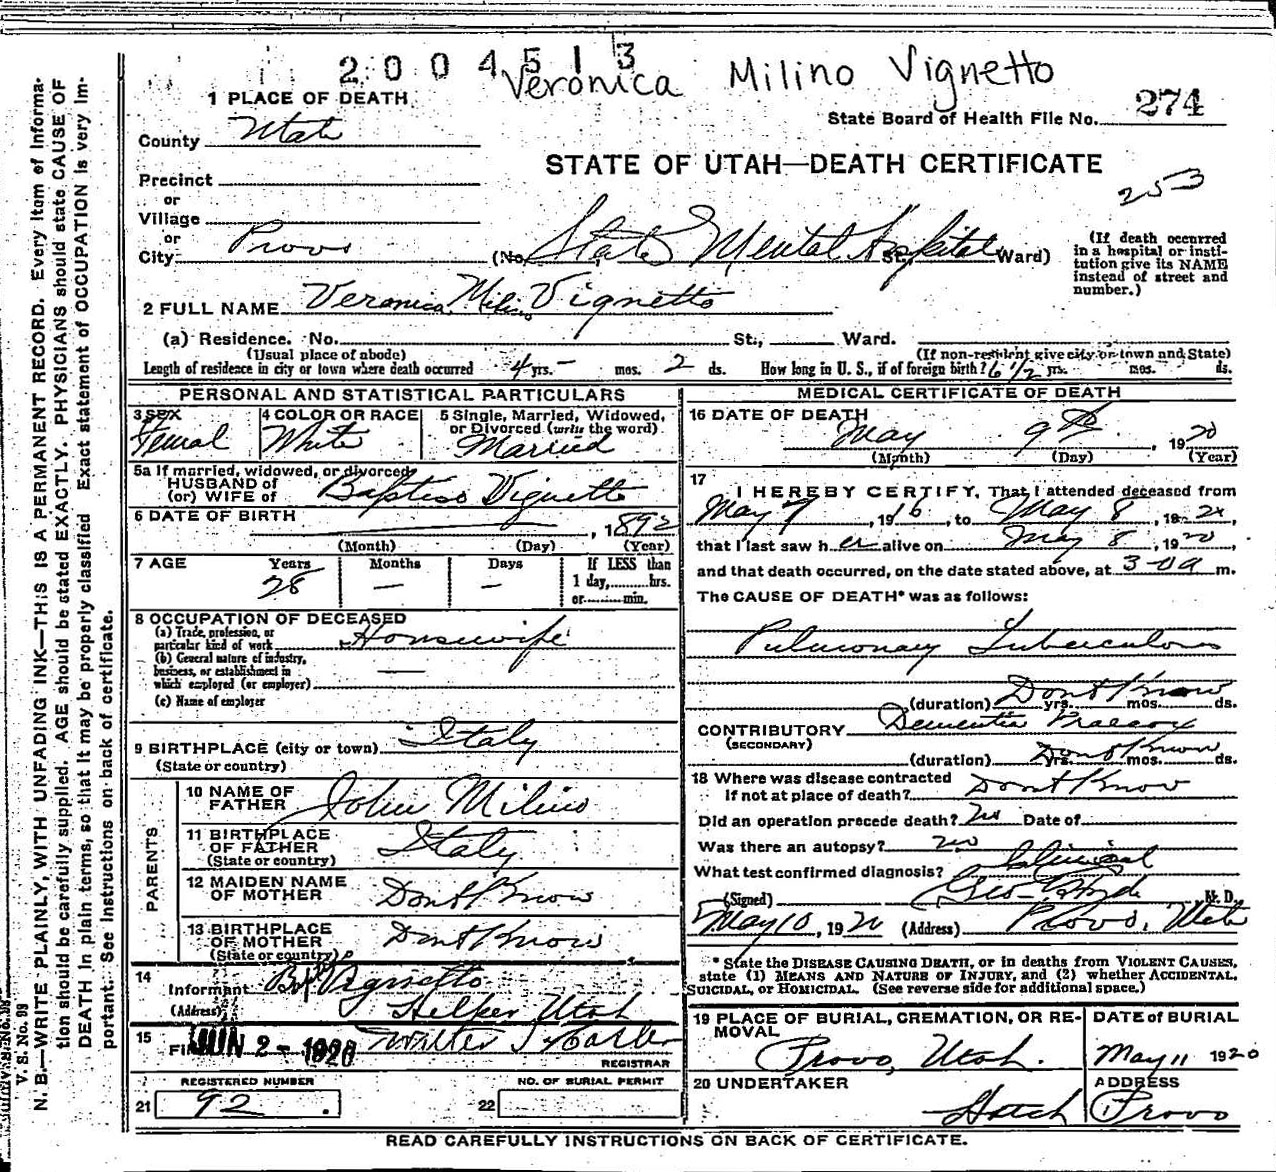 2004513
Veronica Milino Vignetto
1 PLACE OF DEATH
State Board of Health File No. 274
County Utah
STATE OF UTAH—DEATH CERTIFICATE
253
Precinct
or
Village
or
City Provo (No. State Mental Hospital St., Ward)
(If death occurred in a hospital or institution give its NAME instead of street and number.)
2 FULL NAME Veronica Milino Vignetto
(a) Residence. No. St., Ward.
(Usual place of abode) (If non-resident give city or town and State)
Length of residence in city or town where death occurred 4 yrs. - mos. 2 ds. How long in U. S., if of foreign birth? 6 1/2 yrs. mos. ds.
PERSONAL AND STATISTICAL PARTICULARS
3 SEX Femal
4 COLOR OR RACE White
5 Single, Married, Widowed, or Divorced (write the word) Married
5a If married, widowed, or divorced
HUSBAND of
(or) WIFE of Baptiso Vignetto
6 DATE OF BIRTH , 1892
(Month) (Day) (Year)
7 AGE Years 28 Months — Days — If LESS than 1 day, hrs. or min.
8 OCCUPATION OF DECEASED
(a) Trade, profession, or particular kind of work Housewife
(b) General nature of industry, business, or establishment in which employed (or employer) —
(c) Name of employer
9 BIRTHPLACE (city or town) Italy
(State or country)
PARENTS
10 NAME OF FATHER John Milino
11 BIRTHPLACE OF FATHER (State or country) Italy
12 MAIDEN NAME OF MOTHER Dont Know
13 BIRTHPLACE OF MOTHER (State or country) Dont Know
14 Informant Vignetto
(Address) Helper Utah
15 Filed JUN 2 - 1920 Walter
REGISTRAR
REGISTERED NUMBER
21 92
NO. OF BURIAL PERMIT
22
MEDICAL CERTIFICATE OF DEATH
16 DATE OF DEATH
May 9th, 1920
(Month) (Day) (Year)
17
I HEREBY CERTIFY, That I attended deceased from
May 7, 1916, to May 8, 1920,
that I last saw her alive on May 8, 1920,
and that death occurred, on the date stated above, at 3-0 a m.
The CAUSE OF DEATH* was as follows:
Pulmonary Tuberculosis
(duration) Dont Know yrs. mos. ds.
CONTRIBUTORY Dementia Praecox
(SECONDARY)
(duration) Dont Know yrs. mos. ds.
18 Where was disease contracted
if not at place of death? Dont Know
Did an operation precede death? No Date of
Was there an autopsy? no
What test confirmed diagnosis? Clinical
(Signed) Geo Hyde M. D.
May 10, 1920 (Address) Provo, Utah
* State the DISEASE CAUSING DEATH, or in deaths from VIOLENT CAUSES,
state (1) MEANS AND NATURE OF INJURY, and (2) whether ACCIDENTAL,
SUICIDAL, or HOMICIDAL. (See reverse side for additional space.)
19 PLACE OF BURIAL, CREMATION, OR REMOVAL Provo, Utah.
DATE of BURIAL May 11 1920
20 UNDERTAKER Hatch
ADDRESS Provo
READ CAREFULLY INSTRUCTIONS ON BACK OF CERTIFICATE.
V. S. No. 99
N. B.—WRITE PLAINLY, WITH UNFADING INK—THIS IS A PERMANENT RECORD. Every item of information should be carefully supplied. AGE should be stated EXACTLY. PHYSICIANS should state CAUSE OF DEATH in plain terms, so that it may be properly classified. Exact statement of OCCUPATION is very important. See instructions on back of certificate.